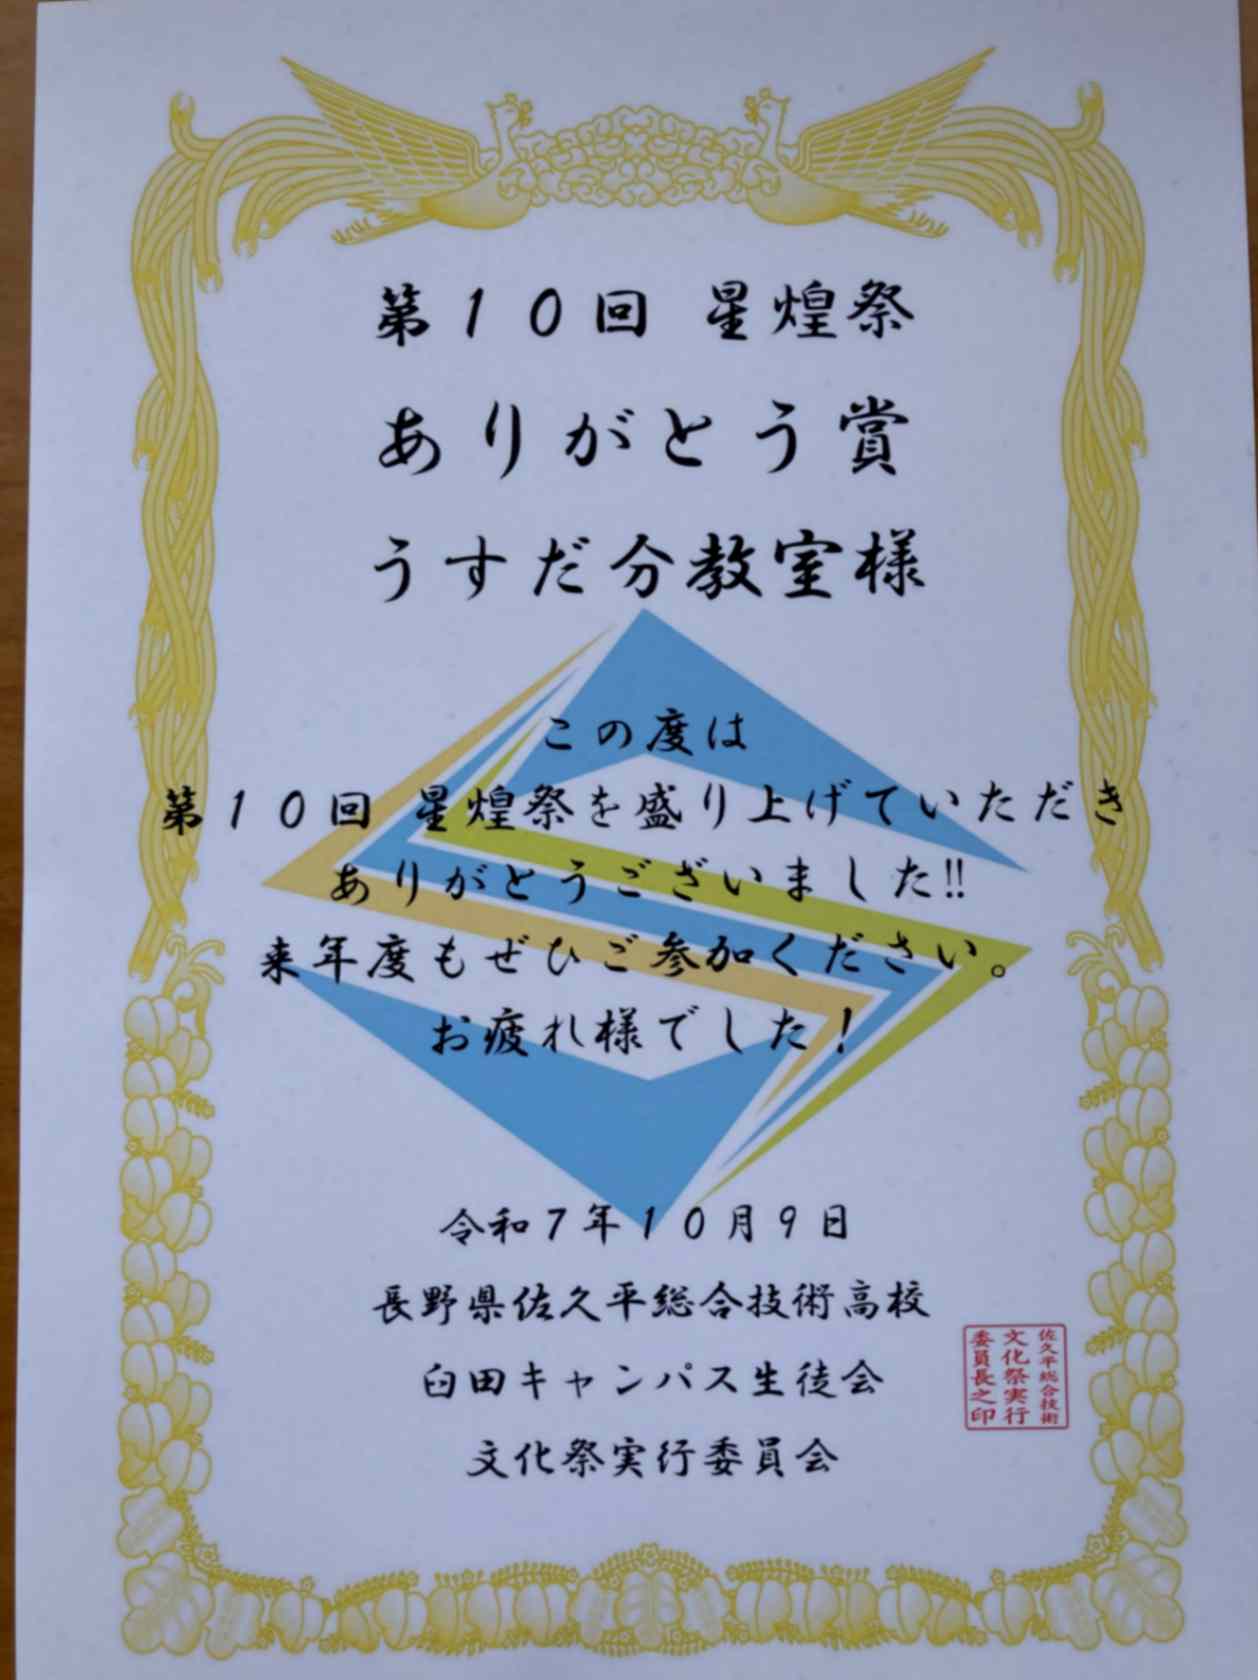 第１０回 星煌祭
ありがとう賞
うすだ分教室様
この度は
第１０回 星煌祭を盛り上げていただき
ありがとうございました!!
来年度もぜひご参加ください。
お疲れ様でした！
令和７年１０月９日
長野県佐久平総合技術高校
臼田キャンパス生徒会
文化祭実行委員会
佐久平総合技術
文化祭実行
委員長之印